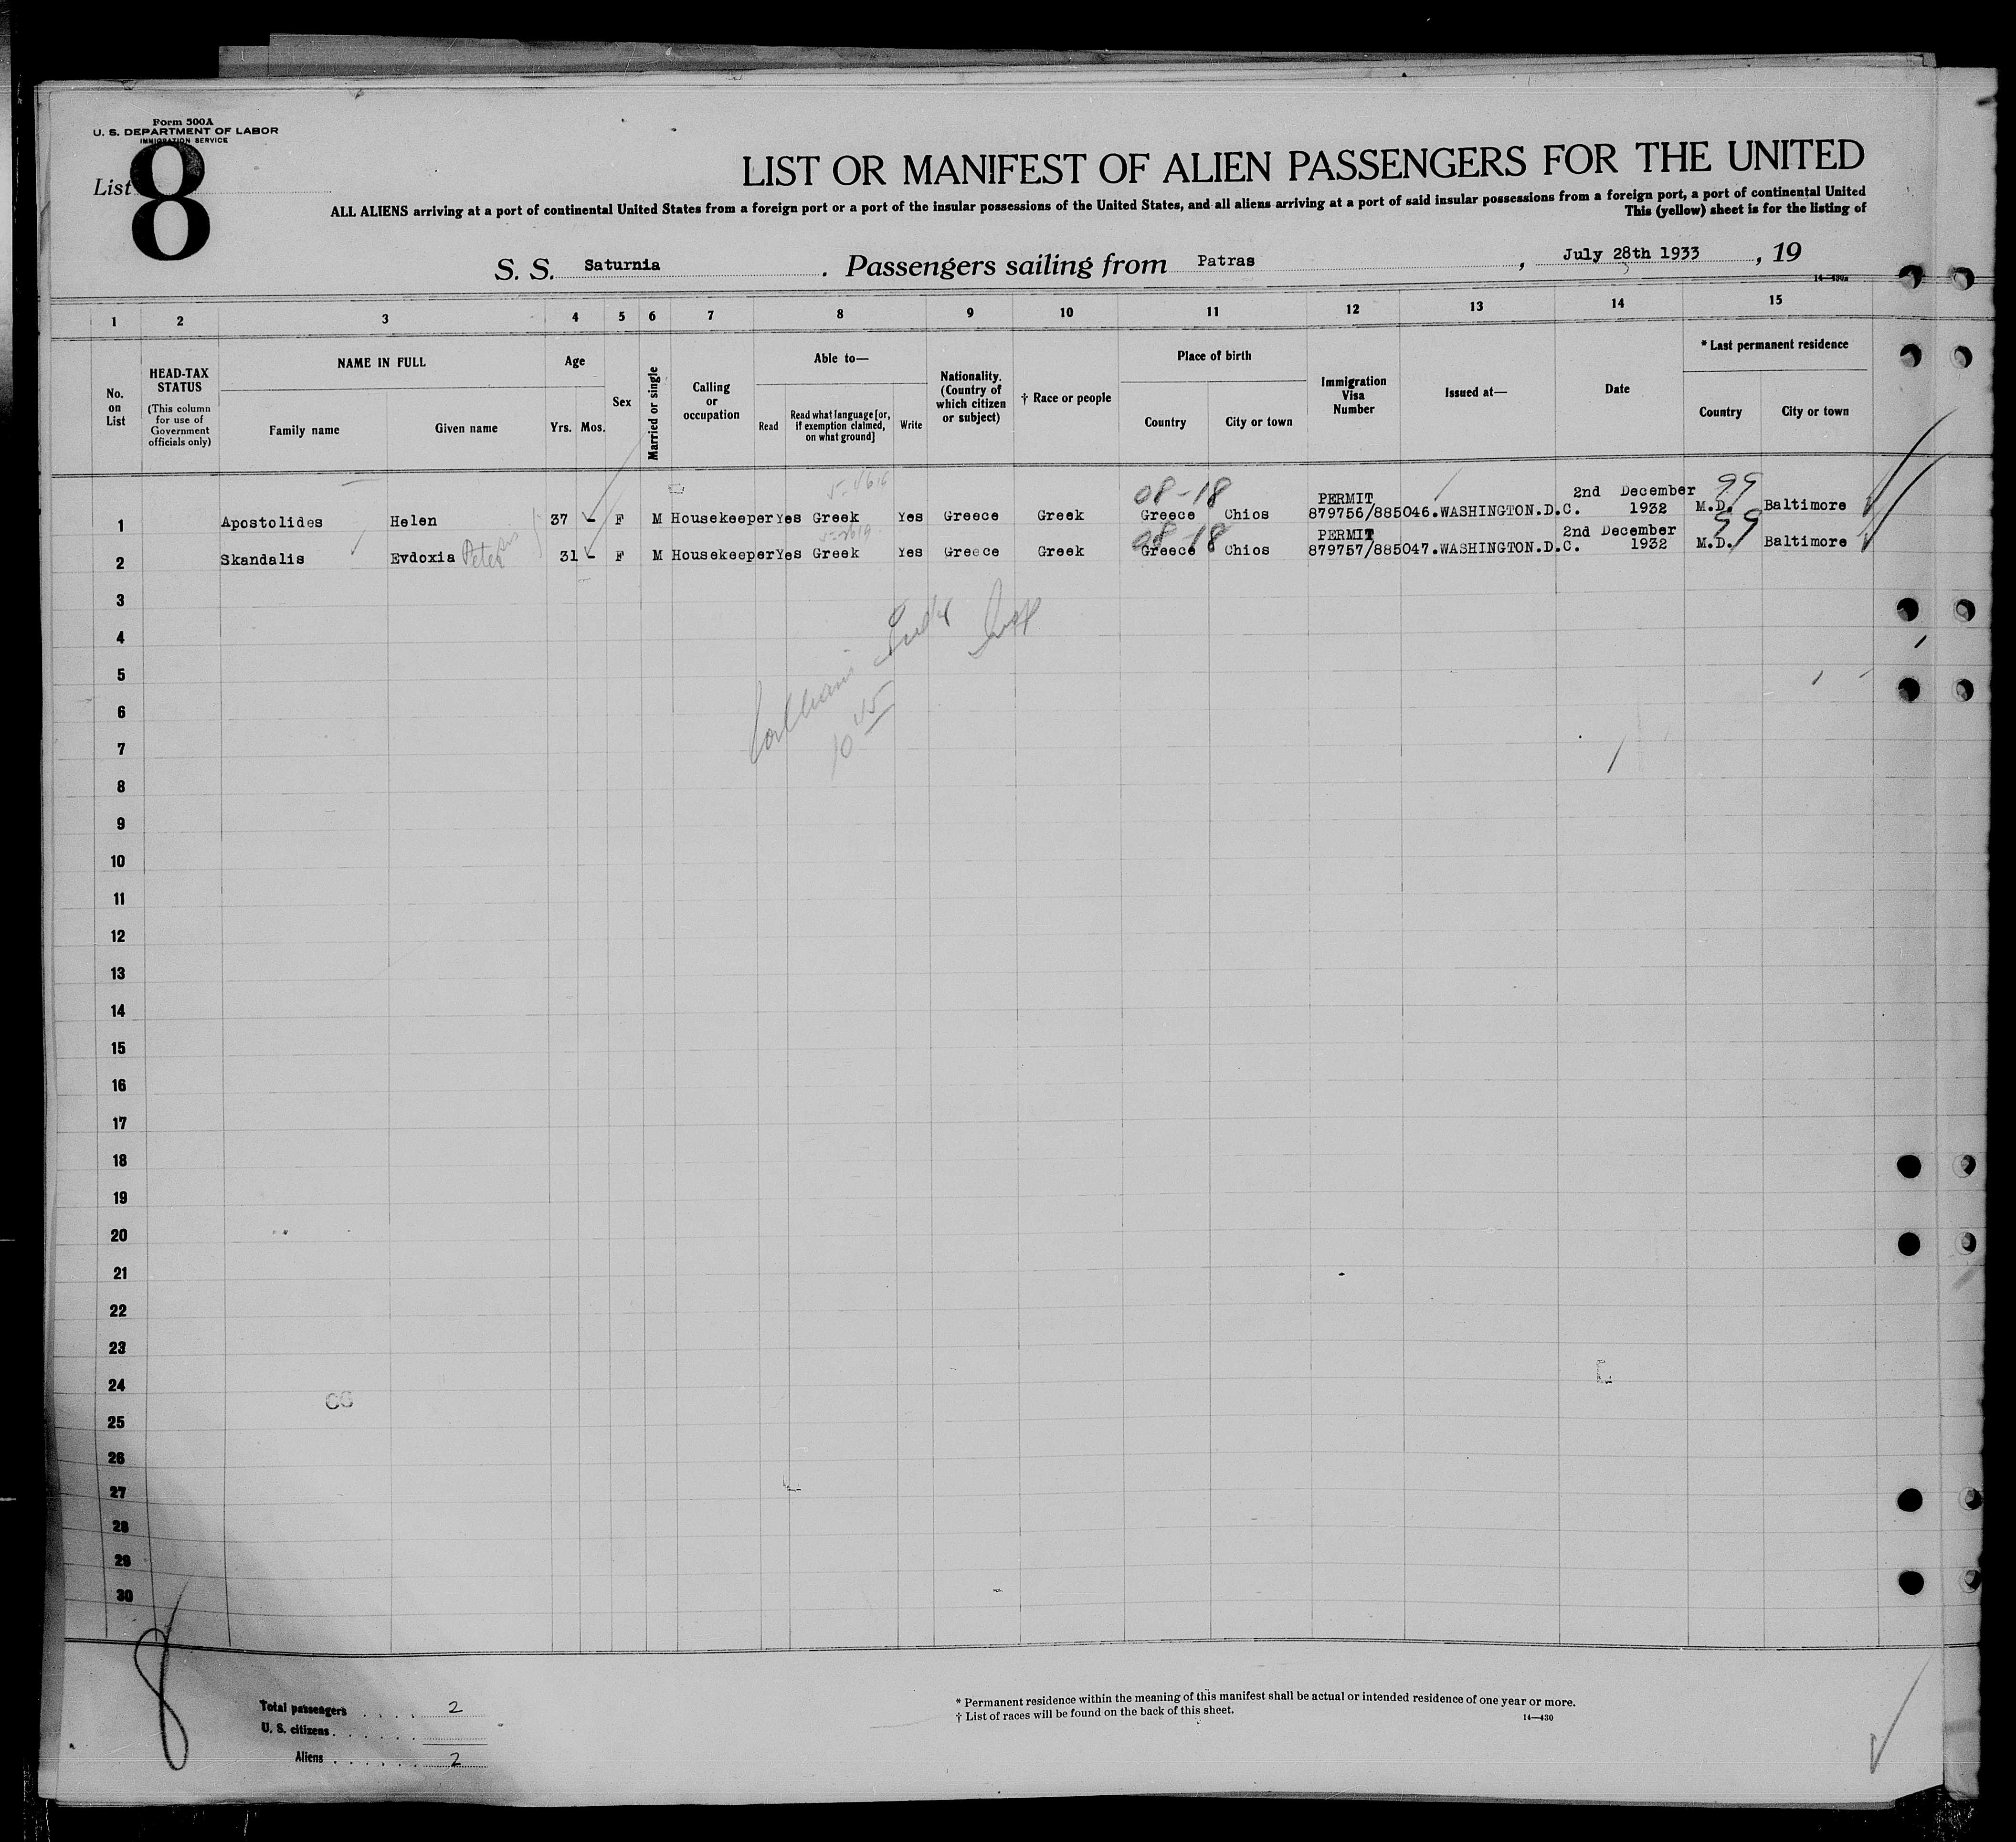 Form 500A
U. S. DEPARTMENT OF LABOR
IMMIGRATION SERVICE
List 8
LIST OR MANIFEST OF ALIEN PASSENGERS FOR THE UNITED
ALL ALIENS arriving at a port of continental United States from a foreign port or a port of the insular possessions of the United States, and all aliens arriving at a port of said insular possessions from a foreign port, a port of continental United
This (yellow) sheet is for the listing of
S. S. Saturnia. Passengers sailing from Patras, July 28th 1933, 19
14—430a
1 2 3 4 5 6 7 8 9 10 11 12 13 14 15
No. on List
HEAD-TAX STATUS
(This column for use of Government officials only)
NAME IN FULL
Family name Given name
Age
Yrs. Mos.
Sex
Married or single
Calling or occupation
Able to—
Read
Read what language [or, if exemption claimed, on what ground]
Write
Nationality. (Country of which citizen or subject)
† Race or people
Place of birth
Country City or town
Immigration Visa Number
Issued at—
Date
* Last permanent residence
Country City or town
08-18 PERMIT 2nd December 99
1 Apostolides Helen 37 - F M Housekeeper Yes Greek Yes Greece Greek Greece Chios 879756/885046.WASHINGTON.D.C. 1932 M.D. Baltimore
08-18 PERMIT 2nd December 99
2 Skandalis Evdoxia Peter 31 - F M Housekeeper Yes Greek Yes Greece Greek Greece Chios 879757/885047.WASHINGTON.D.C. 1932 M.D. Baltimore
3
4
5
6
7
8
9
10
11
12
13
14
15
16
17
18
19
20
21
22
23
24
25
26
27
28
29
30
8
Total passengers . . . . 2
U. S. citizens . . . . . .
Aliens . . . . . . 2
* Permanent residence within the meaning of this manifest shall be actual or intended residence of one year or more.
† List of races will be found on the back of this sheet.
14—430